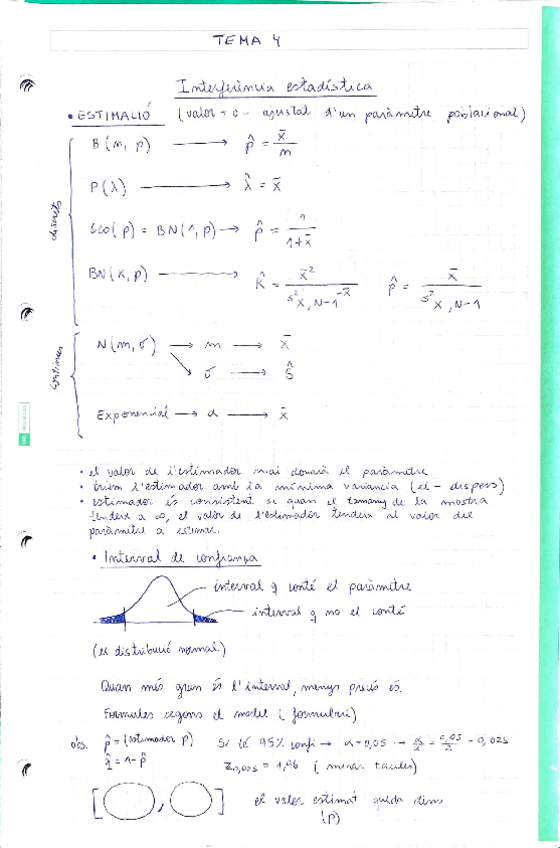 TEMA 4
Interferència estadística
• ESTIMACIÓ (valor + o - ajustat d'un paràmetre poblacional)
discrets
B(m, p) → p̂ = x̄ / m
P(λ) → λ̂ = x̄
Geo(p) = BN(1, p) → p̂ = 1 / (1 + x̄)
BN(K, p) → K̂ = x̄² / (s²x,N-1 - x̄) p̂ = x̄ / s²x,N-1
contínues
N(m, σ) → m → x̄
→ σ → ŝ
Exponencial → α → x̄
• el valor de l'estimador mai donarà el paràmetre
• triem l'estimador amb la mínima variancia (el - dispers)
• estimador és consistent si quan el tamany de la mostra
tendeix a ∞, el valor de l'estimador tendeix al valor del
paràmetre a estimar.
• Interval de confiança
interval q conté el paràmetre
interval q no el conté
(és distribució normal)
Quan més gran és l'interval, menys precís és.
Formules segons el model (formulari)
obs. p̂ = (estimador p) Si té 95% confi → α = 0,05 → α/2 = 0,05/2 = 0,025
q̂ = 1 - p̂ Z0,025 = 1,96 (mirar taules)
[ , ] el valor estimat queda dins
(p)